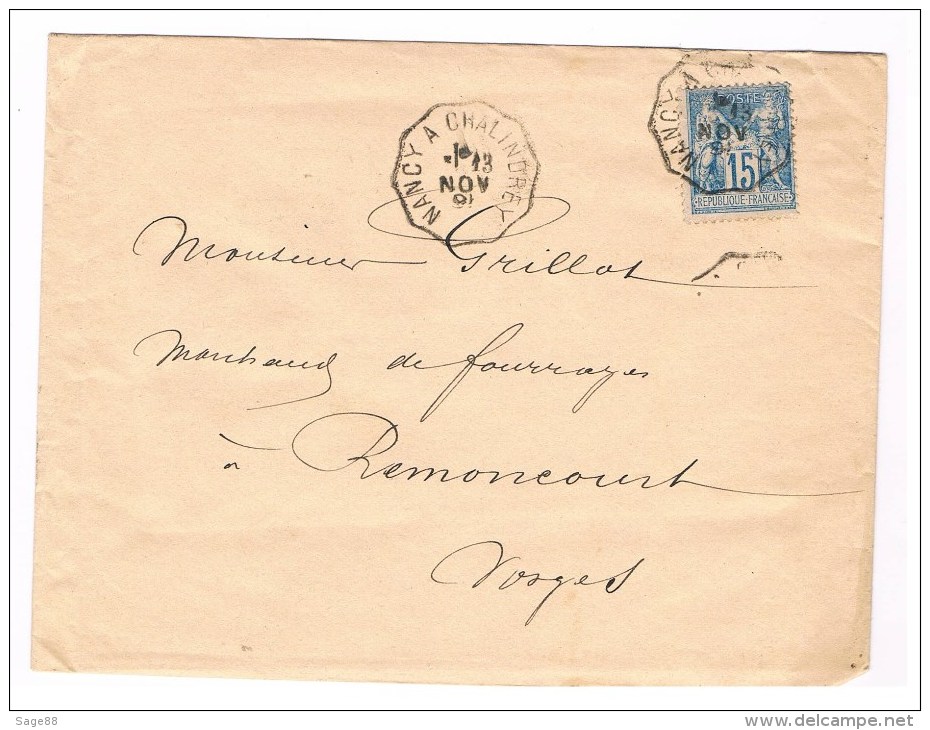 NANCY A CHALINDREY
13
NOV
91
NANCY A
13
NOV
91
POSTE
15
REPUBLIQUE FRANÇAISE
Monsieur Grillot
Marchand de fourrages
à Remoncourt
Vosges
Sage88
www.delcampe.net